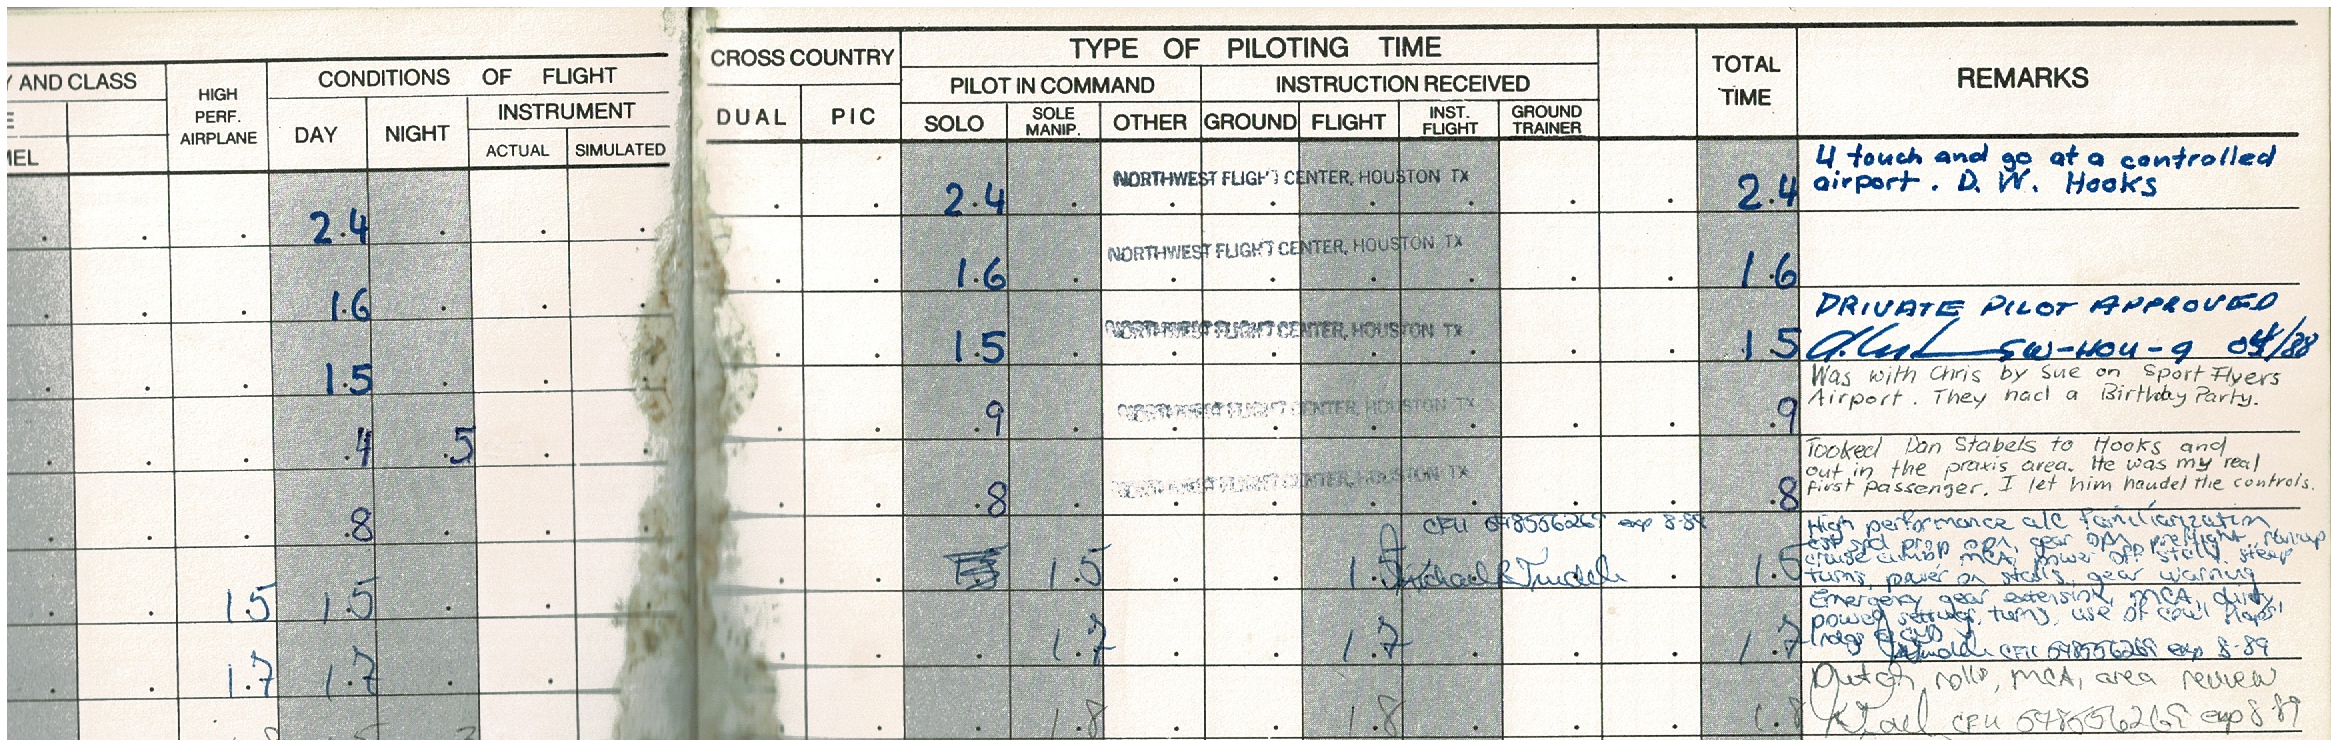 Y AND CLASS
HIGH PERF. AIRPLANE
CONDITIONS OF FLIGHT
DAY
NIGHT
INSTRUMENT
ACTUAL
SIMULATED
MEL
CROSS COUNTRY
DUAL
PIC
TYPE OF PILOTING TIME
PILOT IN COMMAND
SOLO
SOLE MANIP.
OTHER
INSTRUCTION RECEIVED
GROUND
FLIGHT
INST. FLIGHT
GROUND TRAINER
TOTAL TIME
REMARKS
2.4 2.4 NORTHWEST FLIGHT CENTER, HOUSTON TX 2.4
4 touch and go at a controlled
airport. D. W. Hooks
1.6 1.6 NORTHWEST FLIGHT CENTER, HOUSTON TX 1.6
1.5 1.5 NORTHWEST FLIGHT CENTER, HOUSTON TX 1.5
PRIVATE PILOT APPROVED
SW-HOU-9 /88
.4 .5 .9 NORTHWEST FLIGHT CENTER, HOUSTON TX .9
Was with Chris by Sue on Sport Flyers
Airport. They had a Birthday Party.
.8 .8 NORTHWEST FLIGHT CENTER, HOUSTON TX .8
Tooked Dan Stabels to Hooks and
out in the praxis area. He was my real
first passenger. I let him haudel the controls.
CFII 548556269 exp 8-89
1.5 1.5 1.5 1.5 Michael 1.5
High performance a/c familiarization
prop ops, gear ops, preflight, runup
cruise climb, MCA, power off stalls, steep
turns, power on stalls, gear warning
1.7 1.7 1.7 1.7 1.7
Emergency gear extension, MCA,
power settings, turns, use of cowl flaps
CFII 548556269 exp 8-89
1.8 1.8 1.8
Dutch rolls, MCA, area review
CFII 548556269 exp 8-89